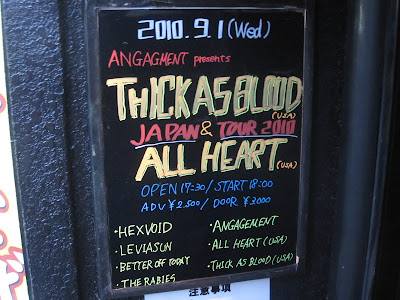 2010.9.1(Wed)
ANGAGMENT presents
THICK AS BLOOD
(USA)
JAPAN & TOUR 2010
ALL HEART (USA)
OPEN 17:30 / START 18:00
ADV ¥2,500 / DOOR ¥3000
・HEXVOID
・LEVIASUN
・BETTER OFF TODAY
・THE RABIES
・ANGAGEMENT
・ALL HEART (USA)
・THICK AS BLOOD (USA)
注意事項